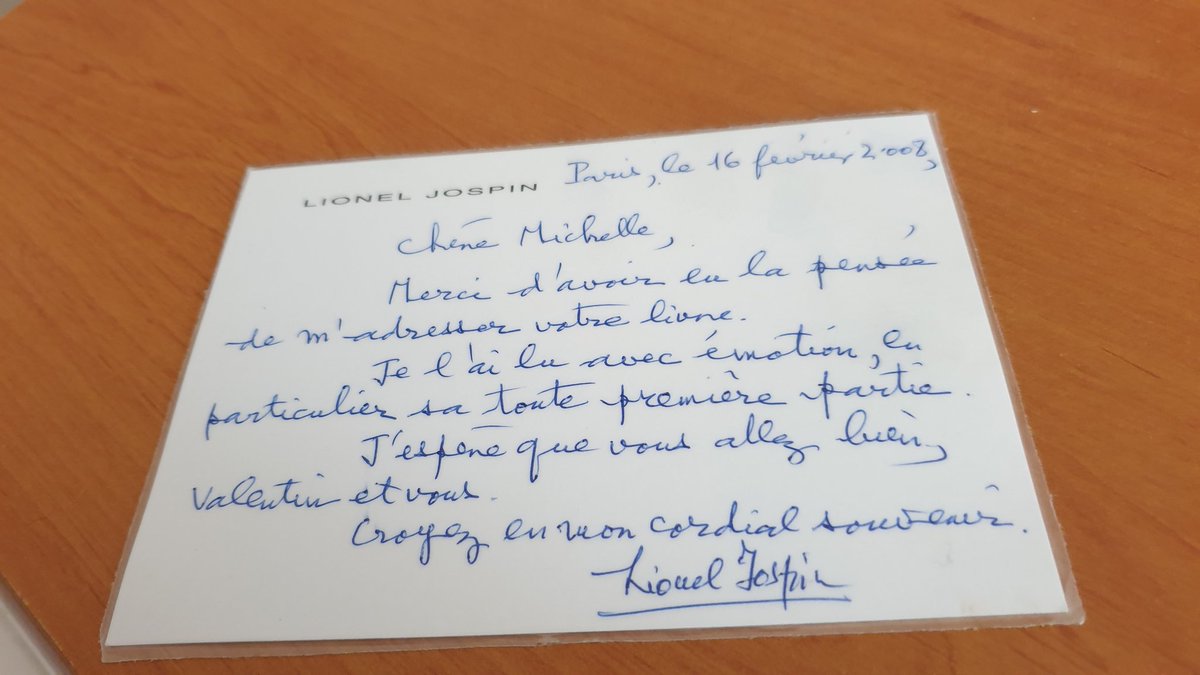 LIONEL JOSPIN
Paris, le 16 février 2008,
Chère Michelle,
Merci d'avoir eu la pensée
de m'adresser votre livre.
Je l'ai lu avec émotion, en
particulier sa toute première partie.
J'espère que vous allez bien,
Valentin et vous.
Croyez en mon cordial souvenir.
Lionel Jospin